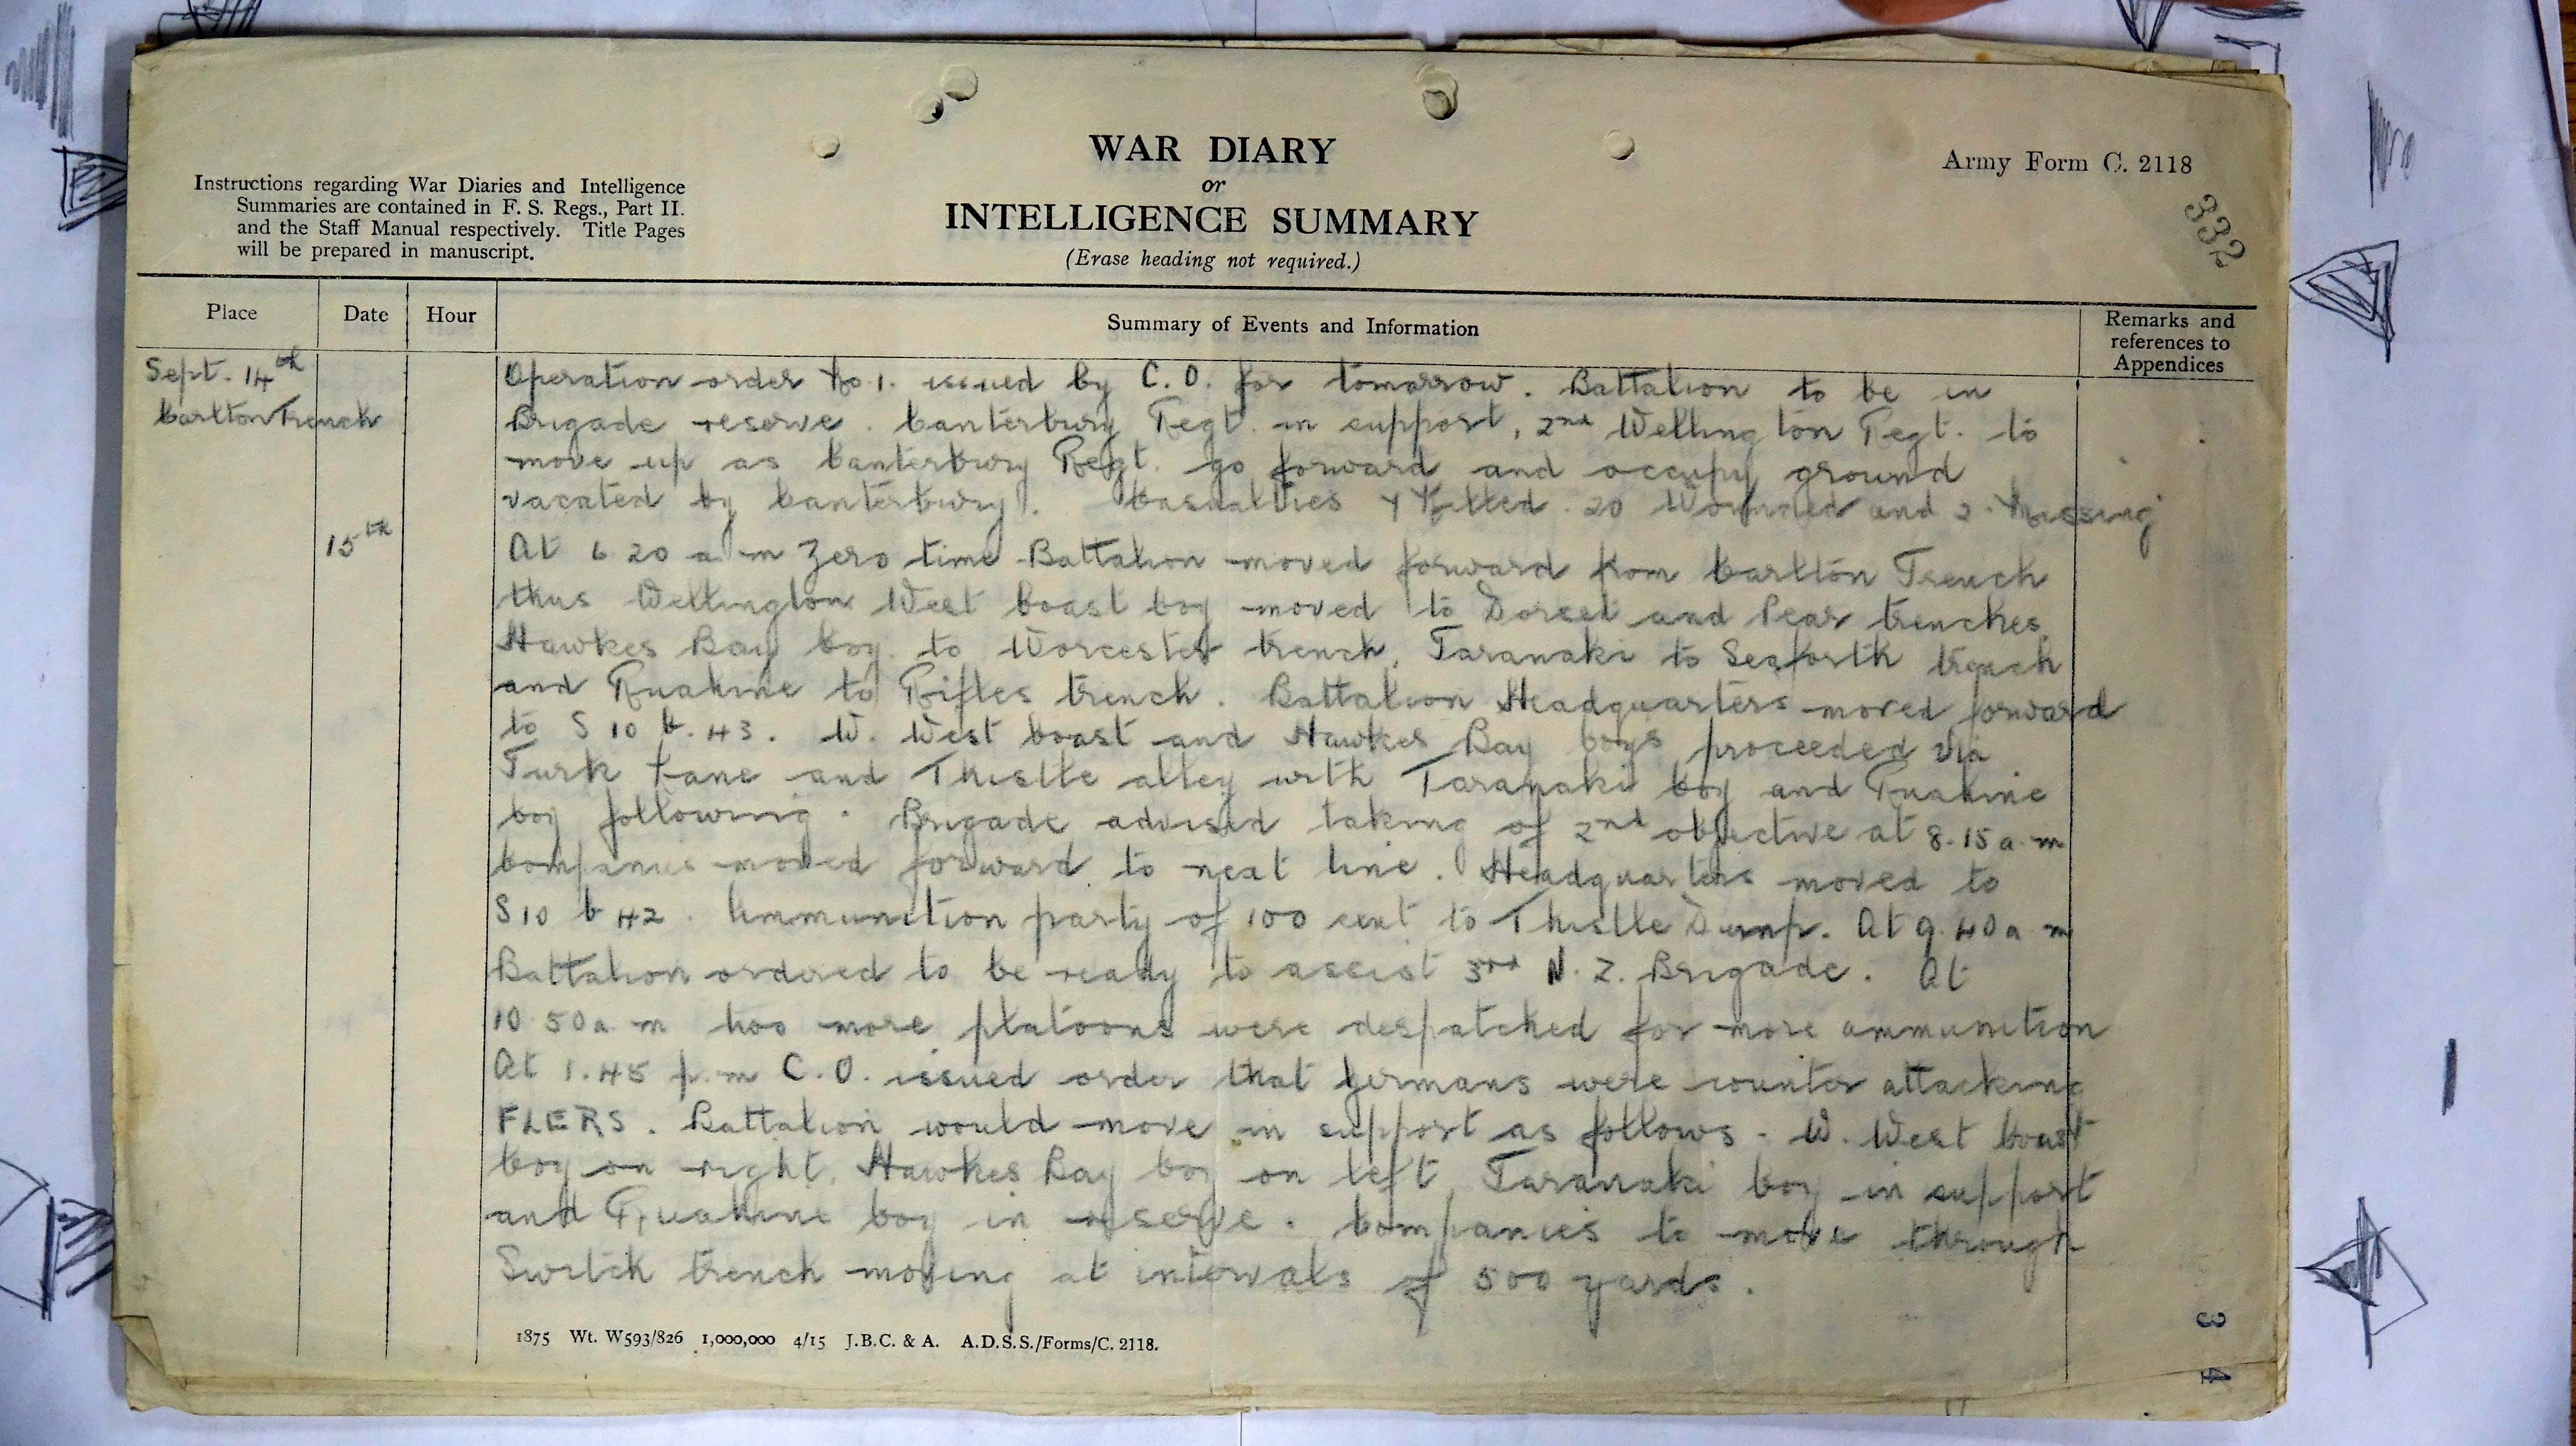 WAR DIARY
or
INTELLIGENCE SUMMARY
(Erase heading not required.)
Army Form C. 2118
332
Instructions regarding War Diaries and Intelligence
Summaries are contained in F. S. Regs., Part II.
and the Staff Manual respectively. Title Pages
will be prepared in manuscript.
Place Date Hour Summary of Events and Information Remarks and references to Appendices
Sept. 14th
Carlton Trench
Operation order No. 1. issued by C.O. for tomorrow. Battalion to be in
Brigade reserve. Canterbury Regt. in support, 2nd Wellington Regt. to
move up as Canterbury Regt. go forward and occupy ground
vacated by Canterbury. Casualties 4 Killed. 20 Wounded and 2. Missing
15th
At 6 20 a m Zero time Battalion moved forward from Carlton Trench
thus Wellington West Coast Coy moved to Dorset and Pear trenches,
Hawkes Bay Coy. to Worcester trench, Taranaki to Seaforth trench
and Ruahine to Rifles trench. Battalion Headquarters moved forward
to S 10 b. 43. W. West Coast and Hawkes Bay Coys proceeded via
Turk Lane and Thistle alley with Taranaki Coy and Ruahine
Coy following. Brigade advised taking of 2nd objective at 8.15 a.m
Companies moved forward to next line. Headquarters moved to
S10 b 42. Ammunition party of 100 sent to Thistle Dump. At 9.40 a m
Battalion ordered to be ready to assist 3rd N.Z. Brigade. At
10 50 a m two more platoons were despatched for more ammunition
At 1.45 p.m C.O. issued order that Germans were counter attacking
FLERS. Battalion would move in support as follows - W. West Coast
Coy on right, Hawkes Bay Coy on left, Taranaki Coy in support
and Ruahine Coy in reserve. Companies to move through
Switch trench moving at intervals of 500 yards.
1875 Wt. W593/826 1,000,000 4/15 J.B.C. & A. A.D.S.S./Forms/C. 2118.
3 4